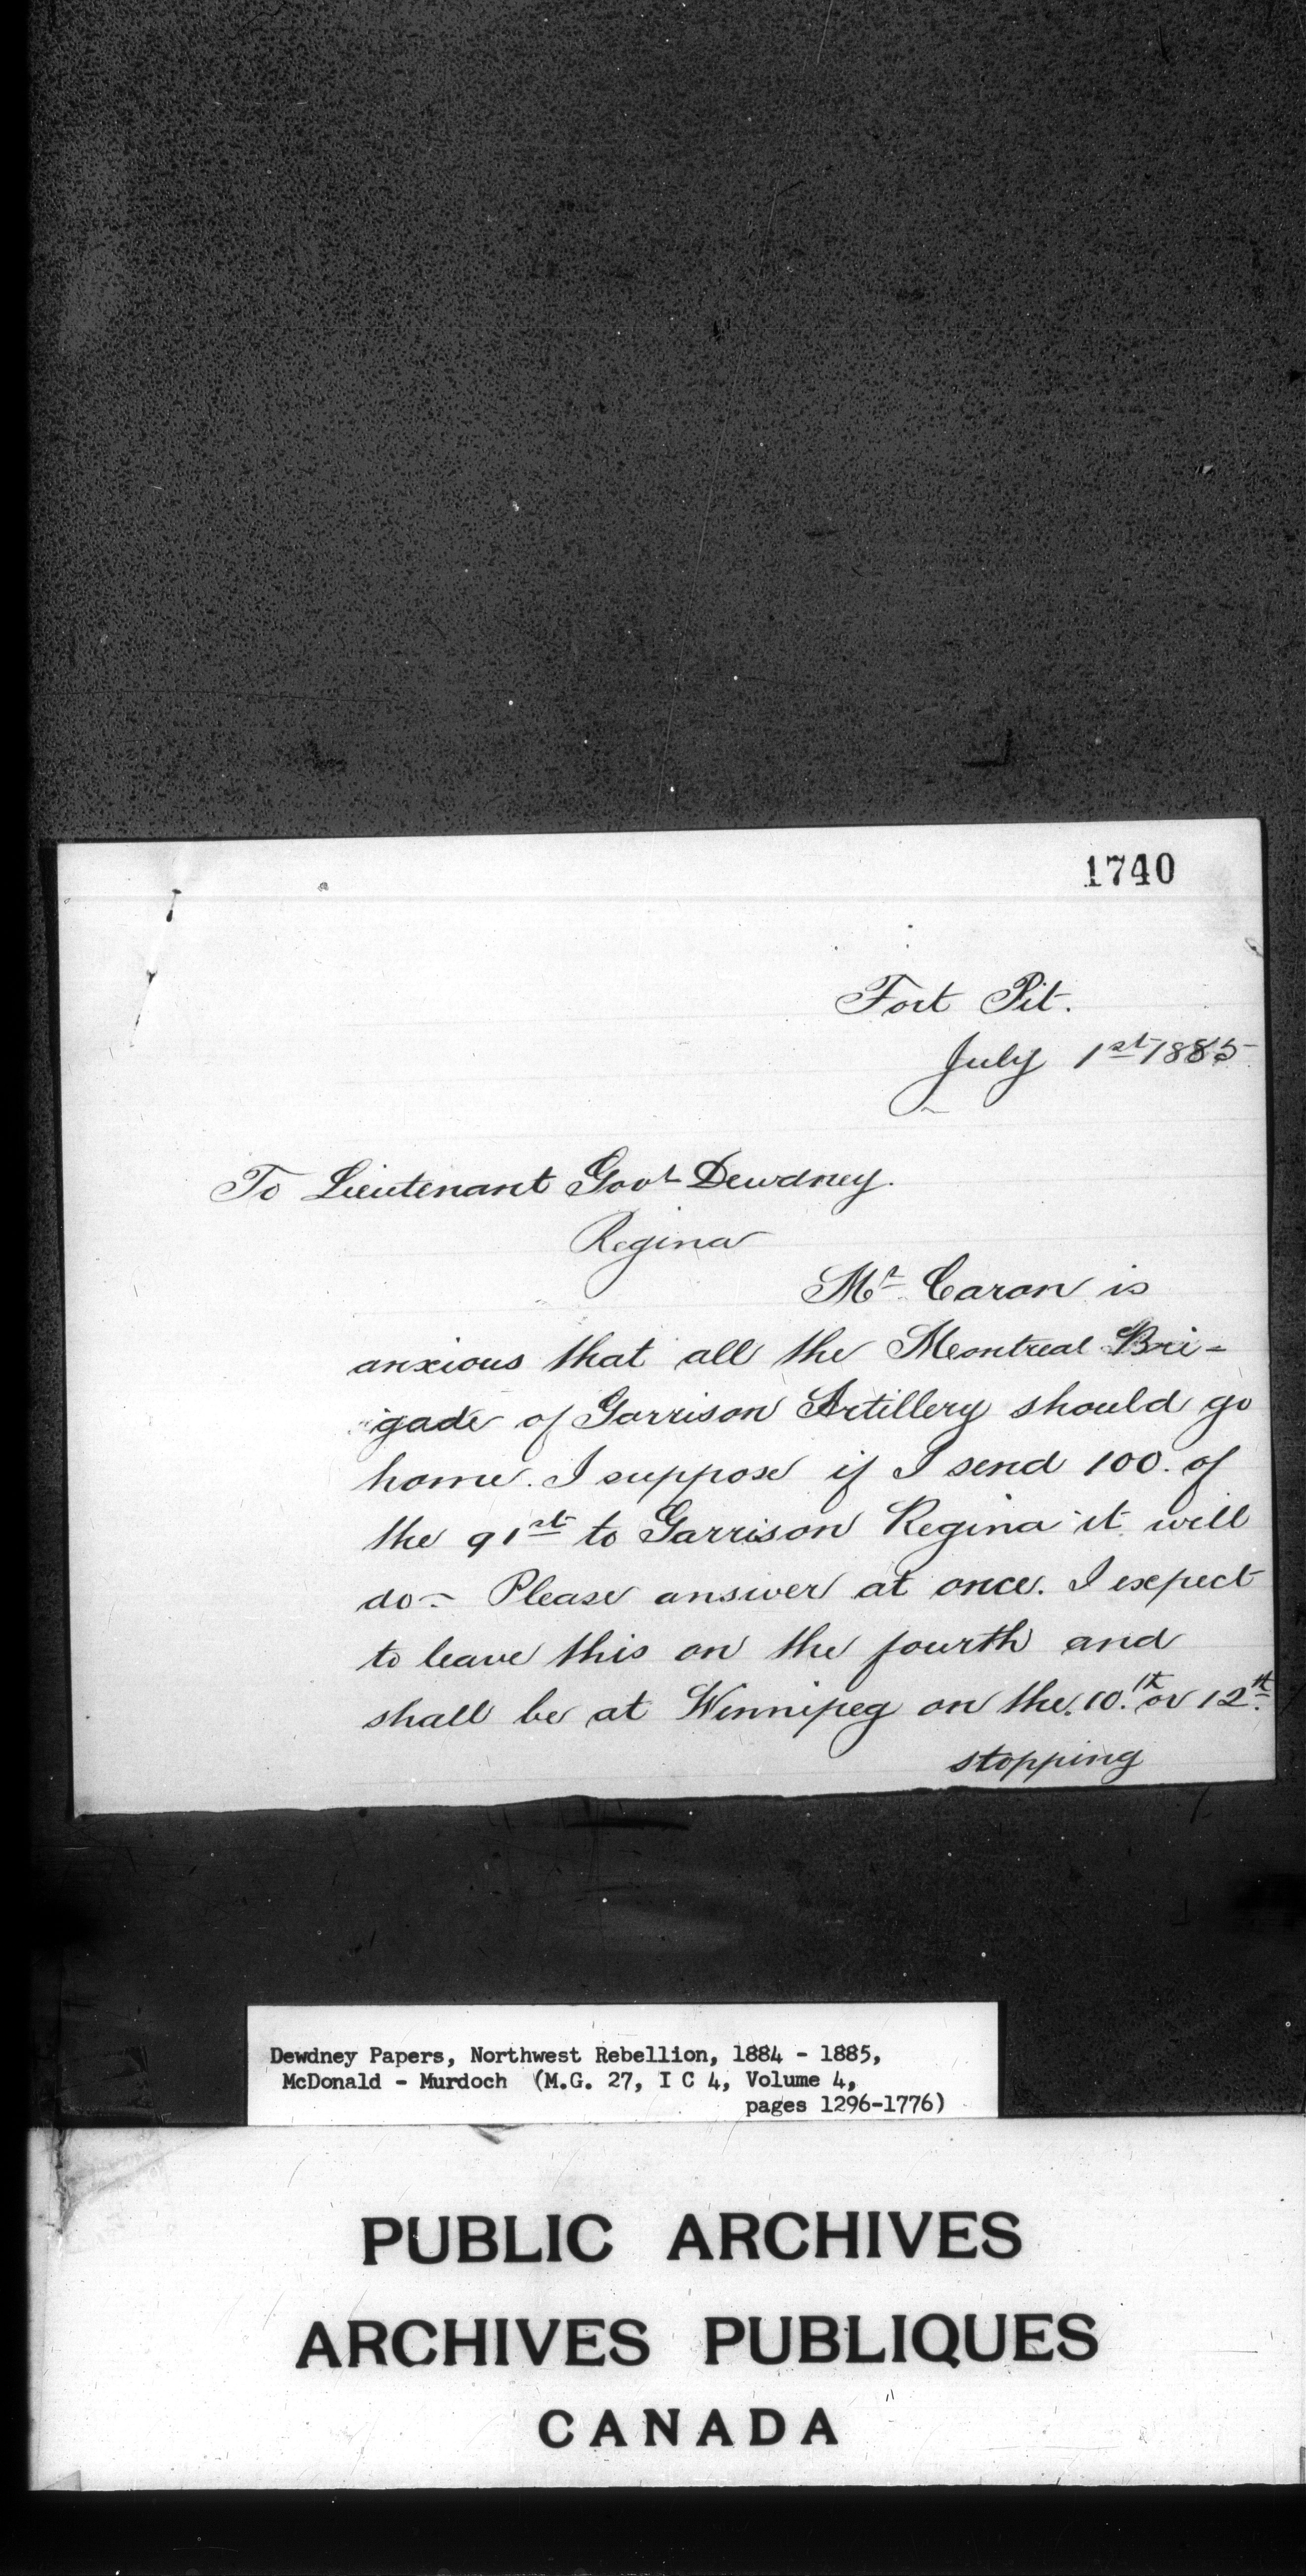 1740
Fort Pit.
July 1st 1885
To Lieutenant Govt Dewdney.
Regina
Mr Caron is
anxious that all the Montreal Bri-
gade of Garrison Artillery should go
home. I suppose if I send 100. of
the 91st to Garrison Regina it will
do - Please answer at once. I expect
to leave this on the fourth and
shall be at Winnipeg on the 10.th or 12th.
stopping
Dewdney Papers, Northwest Rebellion, 1884 - 1885,
McDonald - Murdoch (M.G. 27, I C 4, Volume 4,
pages 1296-1776)
PUBLIC ARCHIVES
ARCHIVES PUBLIQUES
CANADA